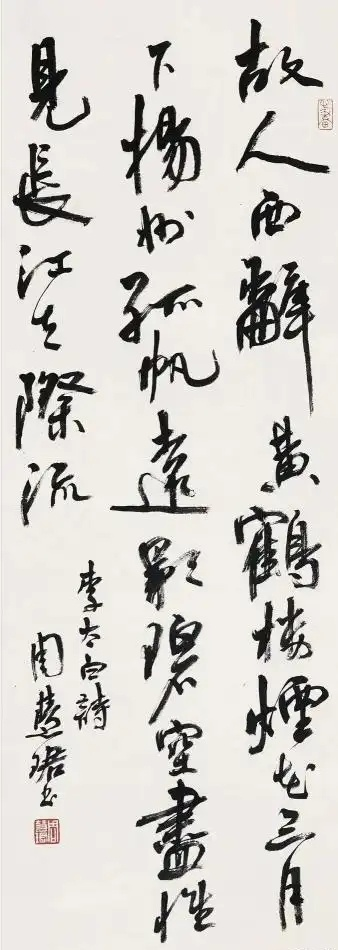 故人西辭黄鶴樓煙花三月
下揚州孤帆遠影碧空盡惟
見長江天際流
李太白詩
周慧珺書